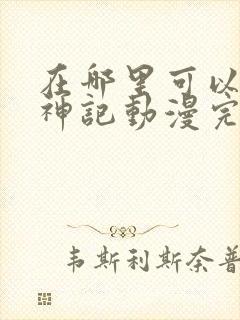 在哪里可以
神記動漫完
韦斯利斯奈普